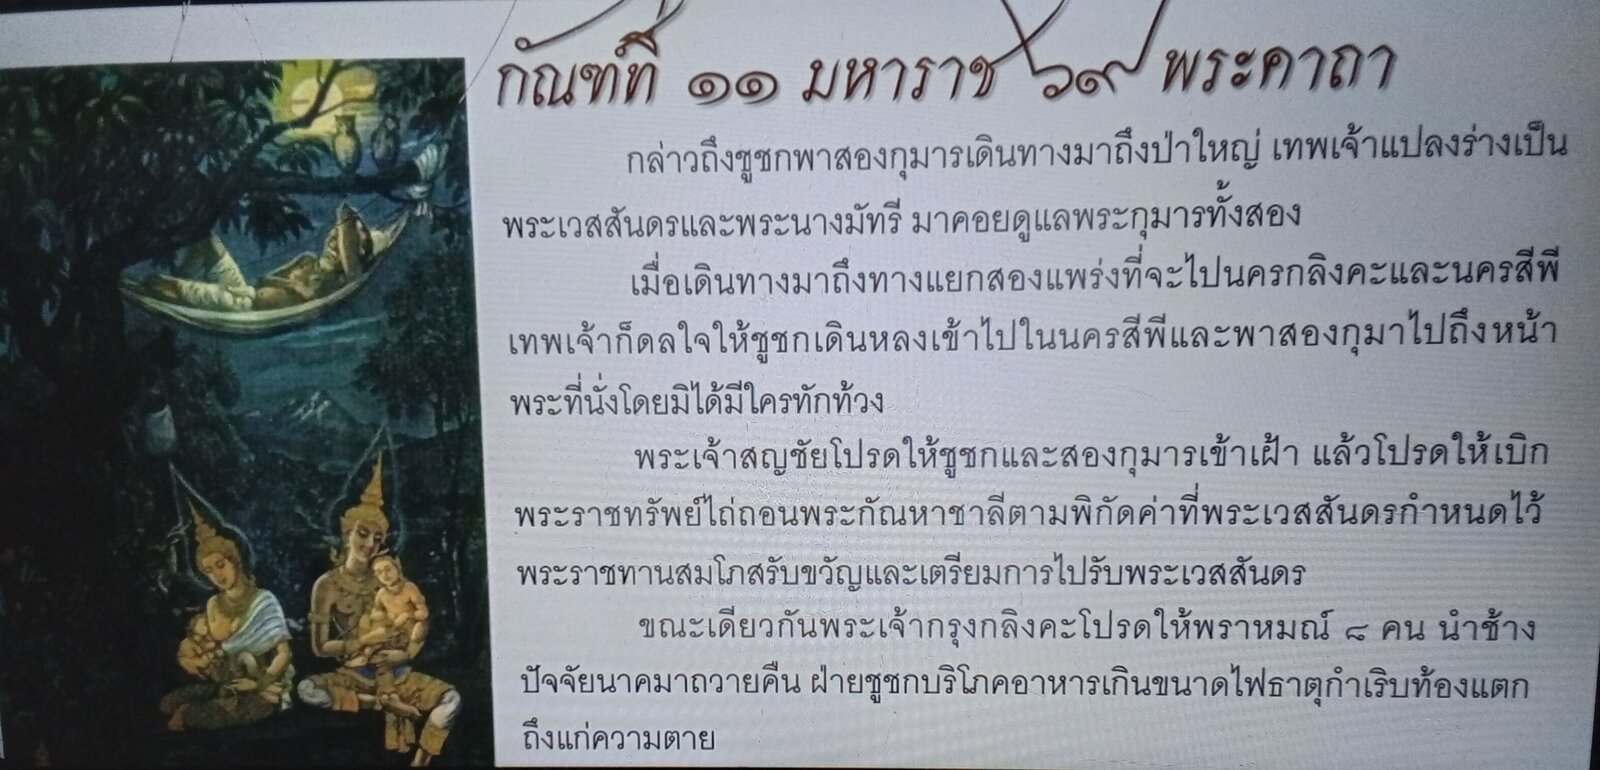 กัณฑ์ที่ ๑๑ มหาราช ๖๙ พระคาถา
กล่าวถึงชูชกพาสองกุมารเดินทางมาถึงป่าใหญ่ เทพเจ้าแปลงร่างเป็น
พระเวสสันดรและพระนางมัทรี มาคอยดูแลพระกุมารทั้งสอง
เมื่อเดินทางมาถึงทางแยกสองแพร่งที่จะไปนครกลิงคะและนครสีพี
เทพเจ้าก็ดลใจให้ชูชกเดินหลงเข้าไปในนครสีพีและพาสองกุมาไปถึงหน้า
พระที่นั่งโดยมิได้มีใครทักท้วง
พระเจ้าสญชัยโปรดให้ชูชกและสองกุมารเข้าเฝ้า แล้วโปรดให้เบิก
พระราชทรัพย์ไถ่ถอนพระกัณหาชาลีตามพิกัดค่าที่พระเวสสันดรกำหนดไว้
พระราชทานสมโภสรับขวัญและเตรียมการไปรับพระเวสสันดร
ขณะเดียวกันพระเจ้ากรุงกลิงคะโปรดให้พราหมณ์ ๘ คน นำช้าง
ปัจจัยนาคมาถวายคืน ฝ่ายชูชกบริโภคอาหารเกินขนาดไฟธาตุกำเริบท้องแตก
ถึงแก่ความตาย